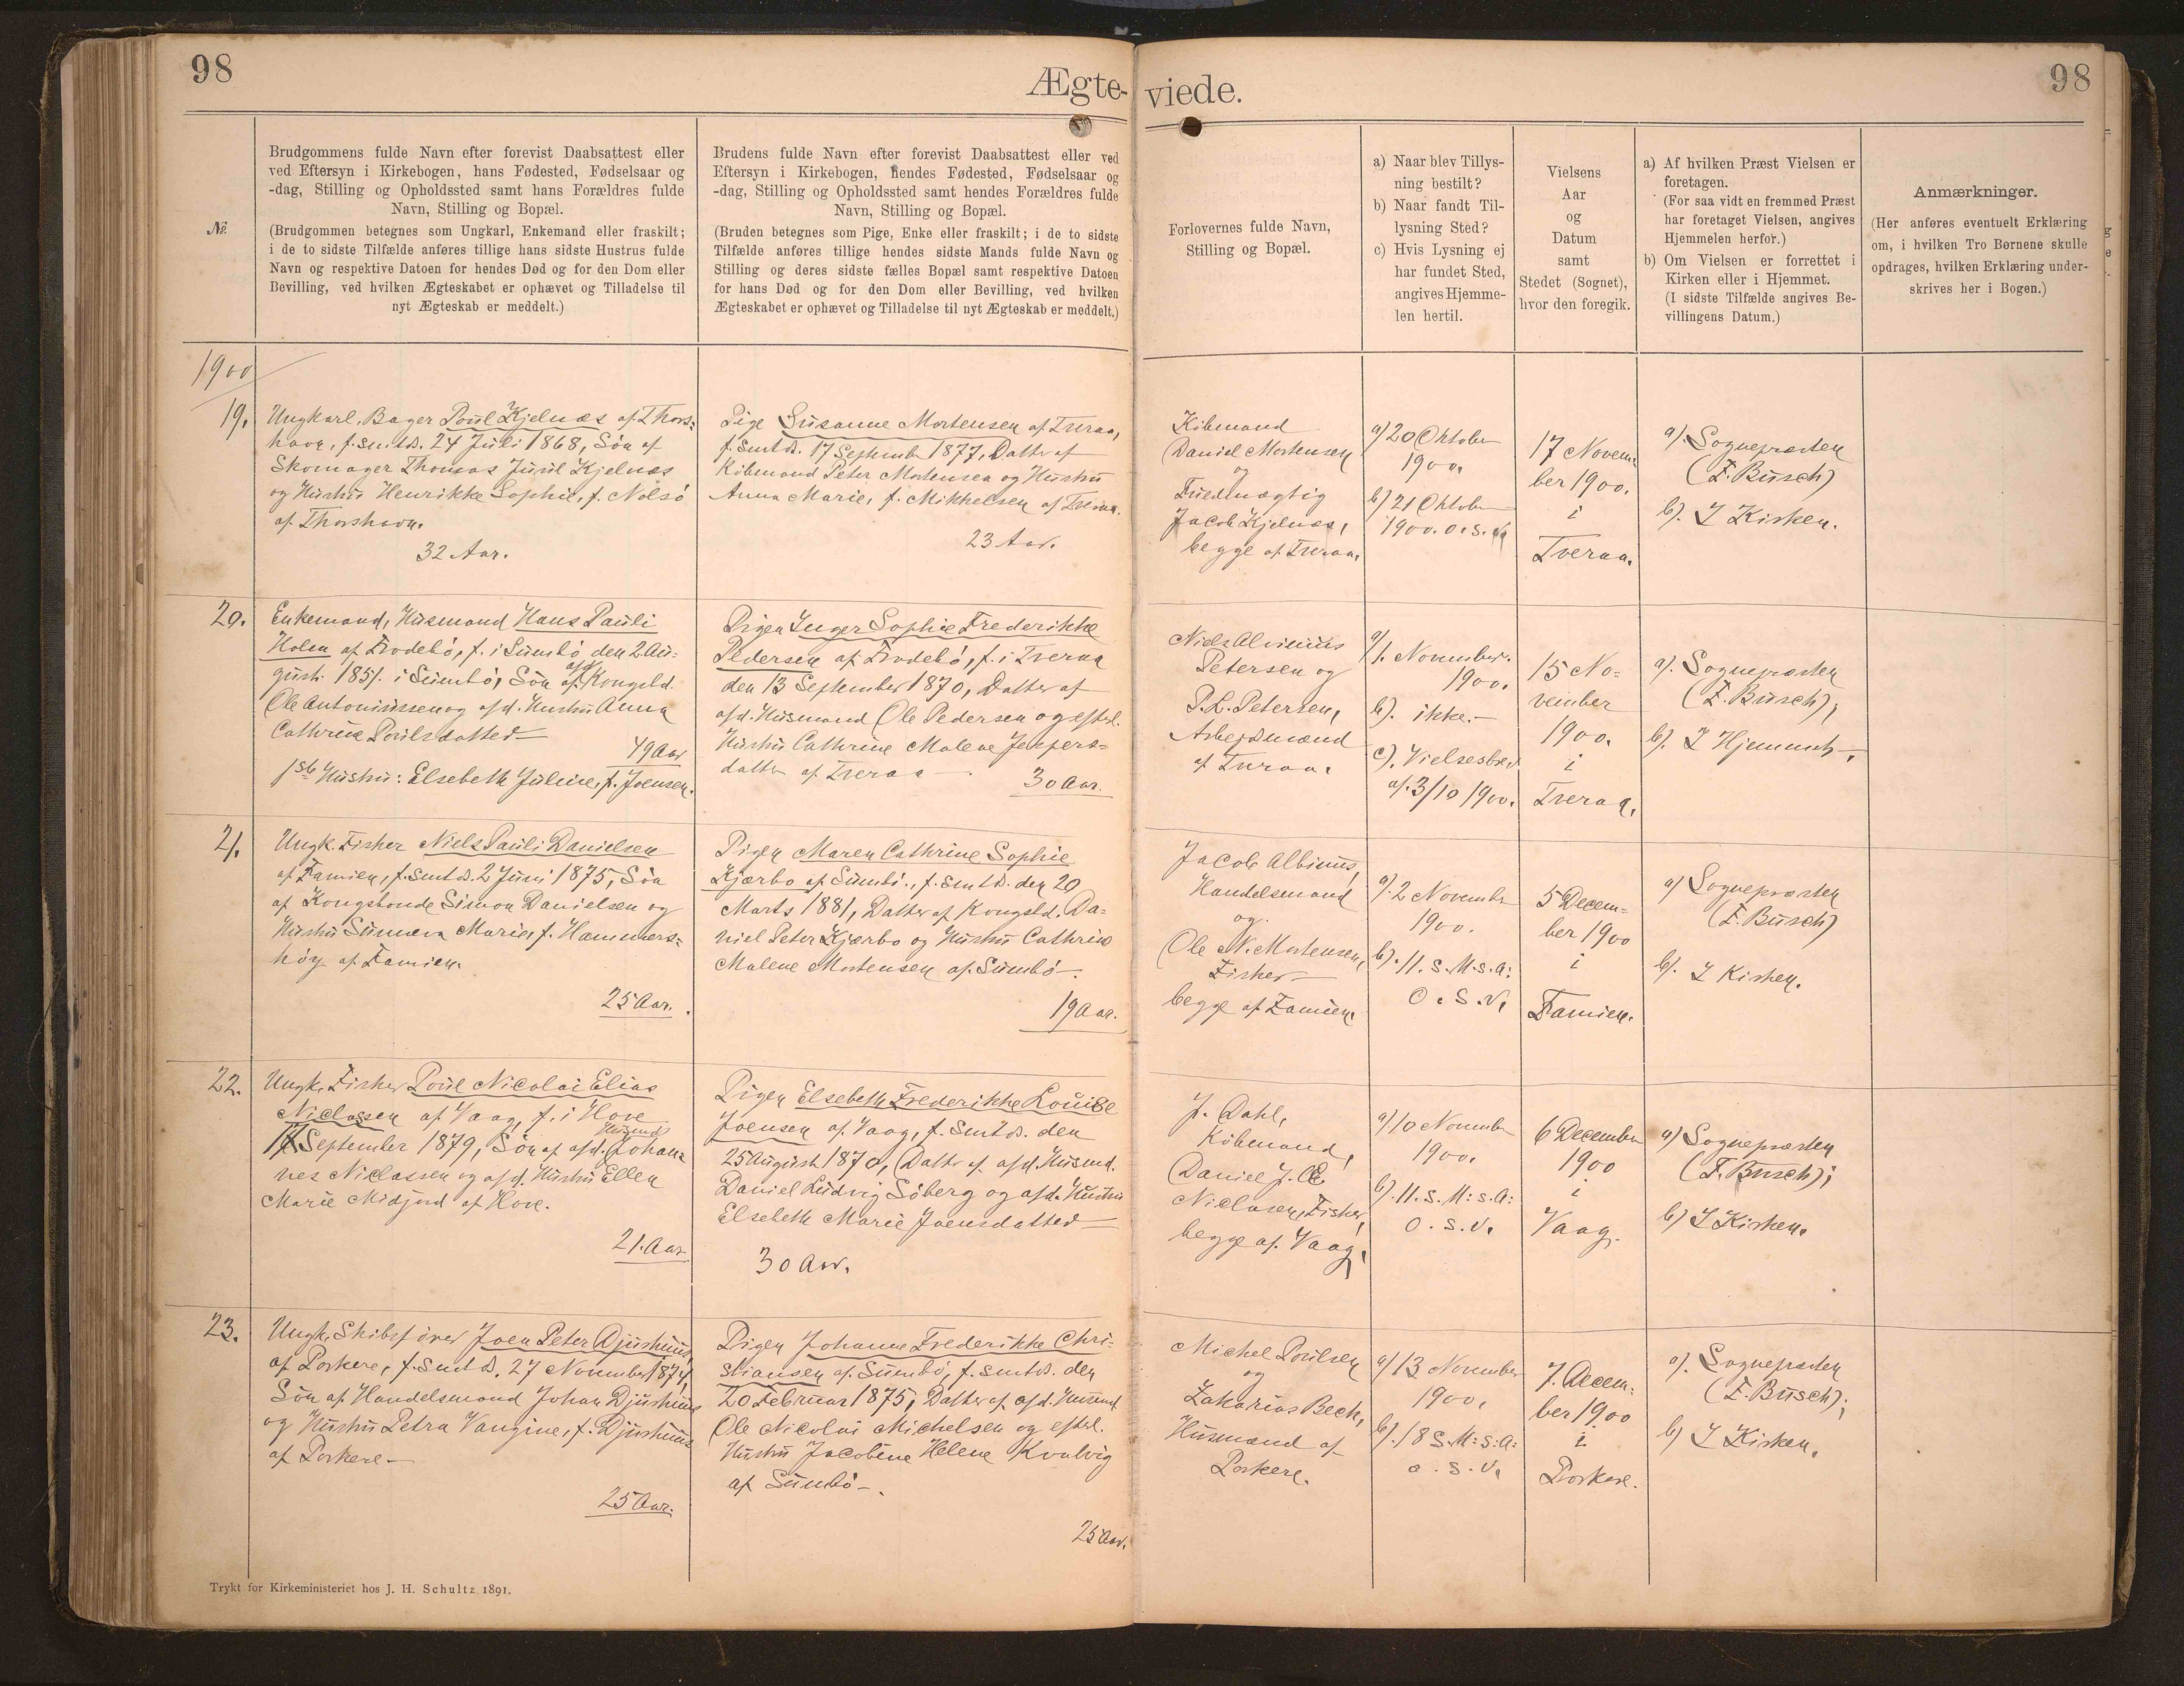 98
Ægte-
viede.
98
№.
Brudgommens fulde Navn efter forevist Daabsattest eller
ved Eftersyn i Kirkebogen, hans Fødested, Fødselsaar og
-dag, Stilling og Opholdssted samt hans Forældres fulde
Navn, Stilling og Bopæl.
(Brudgommen betegnes som Ungkarl, Enkemand eller fraskilt;
i de to sidste Tilfælde anføres tillige hans sidste Hustrus fulde
Navn og respektive Datoen for hendes Død og for den Dom eller
Bevilling, ved hvilken Ægteskabet er ophævet og Tilladelse til
nyt Ægteskab er meddelt.)
Brudens fulde Navn efter forevist Daabsattest eller ved
Eftersyn i Kirkebogen, hendes Fødested, Fødselsaar og
-dag, Stilling og Opholdssted samt hendes Forældres fulde
Navn, Stilling og Bopæl.
(Bruden betegnes som Pige, Enke eller fraskilt; i de to sidste
Tilfælde anføres tillige hendes sidste Mands fulde Navn og
Stilling og deres sidste fælles Bopæl samt respektive Datoen
for hans Død og for den Dom eller Bevilling, ved hvilken
Ægteskabet er ophævet og Tilladelse til nyt Ægteskab er meddelt.)
Forlovernes fulde Navn,
Stilling og Bopæl.
a) Naar blev Tillys-
ning bestilt?
b) Naar fandt Til-
lysning Sted?
c) Hvis Lysning ej
har fundet Sted,
angives Hjemme-
len hertil.
Vielsens
Aar
og
Datum
samt
Stedet (Sognet),
hvor den foregik.
a) Af hvilken Præst Vielsen er
foretagen.
(For saa vidt en fremmed Præst
har foretaget Vielsen, angives
Hjemmelen herfor.)
b) Om Vielsen er forrettet i
Kirken eller i Hjemmet.
(I sidste Tilfælde angives Be-
villingens Datum.)
Anmærkninger.
(Her anføres eventuelt Erklæring
om, i hvilken Tro Børnene skulle
opdrages, hvilken Erklæring under-
skrives her i Bogen.)
1900
19.
Ungkarl, Bager Poul Kjelnæs af Thors-
havn, f. smtd. 24 Juli 1868, Søn af
Skomager Thomas Juul Kjelnæs
og Hustru Henrikke Sophie, f. Nolsø
af Thorshavn.
32 Aar.
Pige Susanne Mortensen af Tveraa,
f. smtd. 17 September 1877, Datter af
Købmand Peter Mortensen og Hustru
Anna Marie, f. Mikkelsen af Tveraa.
23 Aar.
Købmand
Daniel Mortensen
og
Fuldmægtig
Jacob Kjelnæs,
begge af Tveraa.
a) 20 Oktober
1900.
b) 21 Oktober
1900. o. s. v.
17 Novem-
ber 1900.
i
Tveraa.
a). Sognepræsten
(F. Busch)
b). I Kirken.
20.
Enkemand, Husmand Hans Pauli
Holm af Frodebø, f. i Sumbø den 2 Au-
gust 1851 i Sumbø, Søn af afd. Kongsld.
Ole Antoniussen og afd. Hustru Anna
Cathrine Poulsdatter
49 Aar
1ste Hustru: Elsebeth Juline, f. Joensen.
Pigen Inger Sophie Frederikke
Pedersen af Frodebø, f. i Tveraa
den 13 September 1870, Datter af
afd. Husmand Ole Pedersen og efterl.
Hustru Cathrine Malene Jespers-
datter af Tveraa
30 Aar.
Niels Alvinius
Petersen og
P. L. Petersen,
Arbejdsmænd
af Tveraa.
a) 1. November
1900.
b). ikke.
c). Vielsesbrev
af 3/10 1900.
15 No-
vember
1900.
i
Tveraa.
a). Sognepræsten
(F. Busch);
b). I Hjemmet.
21.
Ungk. Fisker Niels Pauli Danielsen
af Famien, f. smtd. 2 Juni 1875, Søn
af Kongsbonde Simon Danielsen og
Hustru Sunneva Marie, f. Hammers-
høy af Famien.
25 Aar.
Pigen Maren Cathrine Sophie
Kjærbo af Sumbø, f. smtd. den 20
Marts 1881, Datter af Kongsld. Da-
niel Peter Kjærbo og Hustru Cathrine
Malene Mortensen af Sumbø.
19 Aar.
Jacob Albinus,
Handelsmand
og
Ole N. Mortensen,
Fisker
begge af Famien.
a). 2 November
1900.
b). 11. S. M. s. A:
o. s. v.
5 Decem-
ber 1900
i
Famien.
a) Sognepræsten
(F. Busch)
b). I Kirken.
22.
Ungk. Fisker Poul Nicolai Elias
Niclassen af Vaag, f. i Hove
17 September 1879, Søn af afd. Husmd Johan-
nes Niclassen og afd. Hustru Ellen
Marie Midjord af Hove.
21. Aar.
Pigen Elsebeth Frederikke Louise
Joensen af Vaag, f. smtd. den
25 August 1870, Datter af afd. Husmd.
Daniel Ludvig Søberg og afd. Hustru
Elsebeth Marie Joensdatter
30 Aar.
J. Dahl,
Købmand,
Daniel J. E.
Niclasen, Fisker,
begge af Vaag.
a) 10 November
1900.
b). 11. S. M: s. A:
o. s. v.
6 December
1900
i
Vaag.
a) Sognepræsten
(F. Busch);
b) I Kirken.
23.
Ungk. Skibsfører Joen Peter Djurhuus
af Porkere, f. smtd. 27 November 1874,
Søn af Handelsmand Johan Djurhuus
og Hustru Petra Vangine, f. Djurhuus
af Porkere
25 Aar.
Pigen Johanne Frederikke Chri-
stiansen af Sumbø, f. smtd. den
20 Februar 1875, Datter af afd. Husmd
Ole Nicolai Michelsen og efterl.
Hustru Jacobine Helene Kvalvig
af Sumbø.
25 Aar.
Michel Poulsen
og
Zakarias Beck,
Husmænd af
Porkere.
a) 13 November
1900.
b). 18 S. M: s: A:
o. s. v.
7. Decem-
ber 1900
i
Porkere.
a). Sognepræsten
(F. Busch);
b) I Kirken.
Trykt for Kirkeministeriet hos J. H. Schultz 1891.